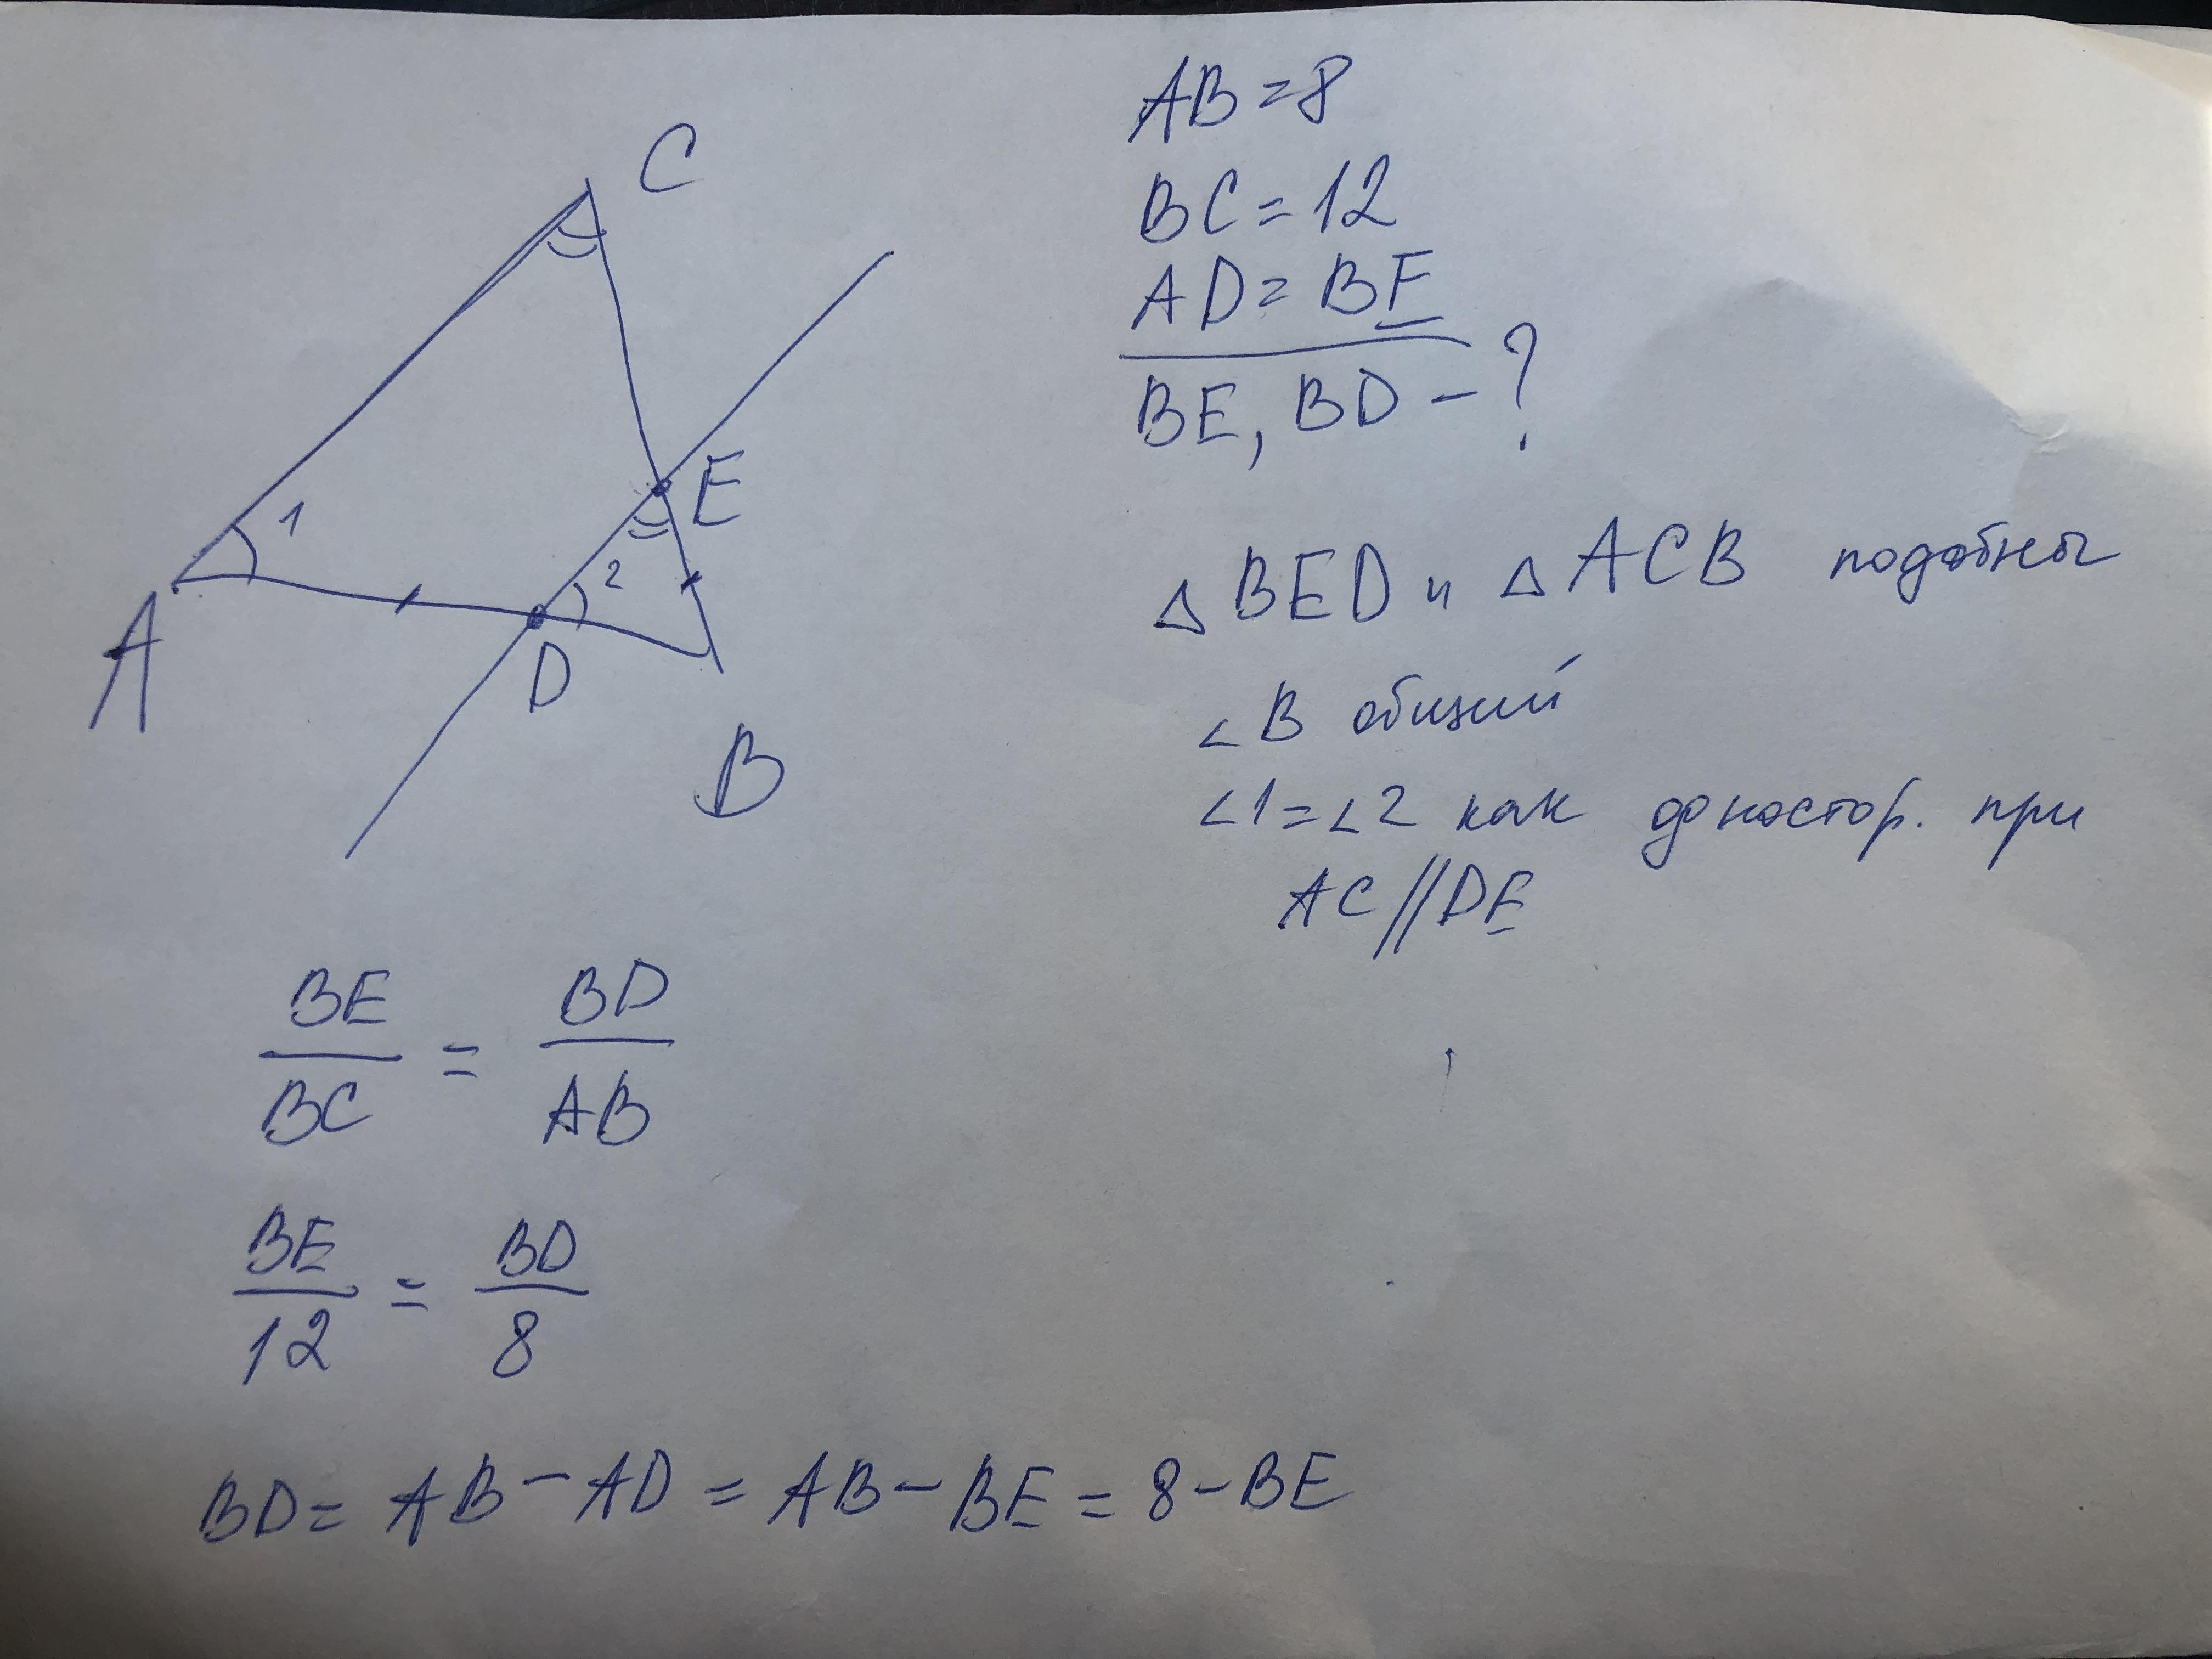 C
E
1
2
A
D
B
AB = 8
BC = 12
AD = BE
BE, BD - ?
△ BED и △ ACB подобны
∠ B общий
∠1 = ∠2 как дностор. при
AC // DE
BE/BC = BD/AB
BE/12 = BD/8
BD = AB - AD = AB - BE = 8 - BE